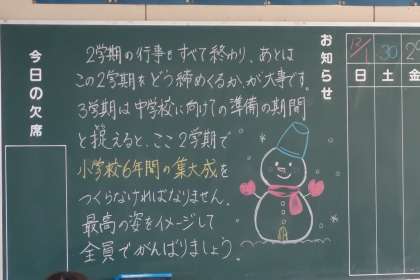 お知らせ
2学期の行事もすべて終わり、あとは
この2学期をどう締めくくるか、が大事です。
3学期は中学校に向けての準備の期間
と捉えると、ここ2学期で
小学校6年間の集大成を
つくらなければなりません。
最高の姿をイメージして
全員でがんばりましょう。
今日の欠席
12/1
30
日
土
金